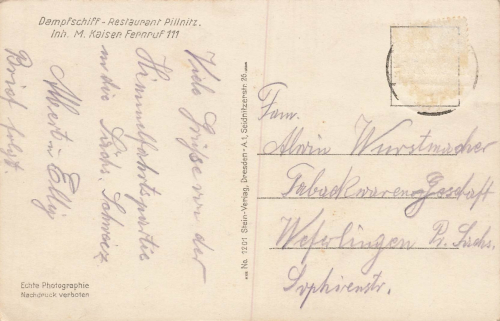 Dampfschiff-Restaurant Pillnitz.
Inh. M. Kaiser Fernruf 111
Viele Grüße von der
Himmelfahrtspartie
in die Sächs. Schweiz
Albert u. Elly
Brief folgt.
No. 1201 Stein-Verlag, Dresden-A 1, Seidnitzerstr. 26
Fam.
Alwin Wurstmacher
Tabackwaren-Geschäft
Weferlingen Pr. Sachs.
Sophienstr.
Echte Photographie
Nachdruck verboten